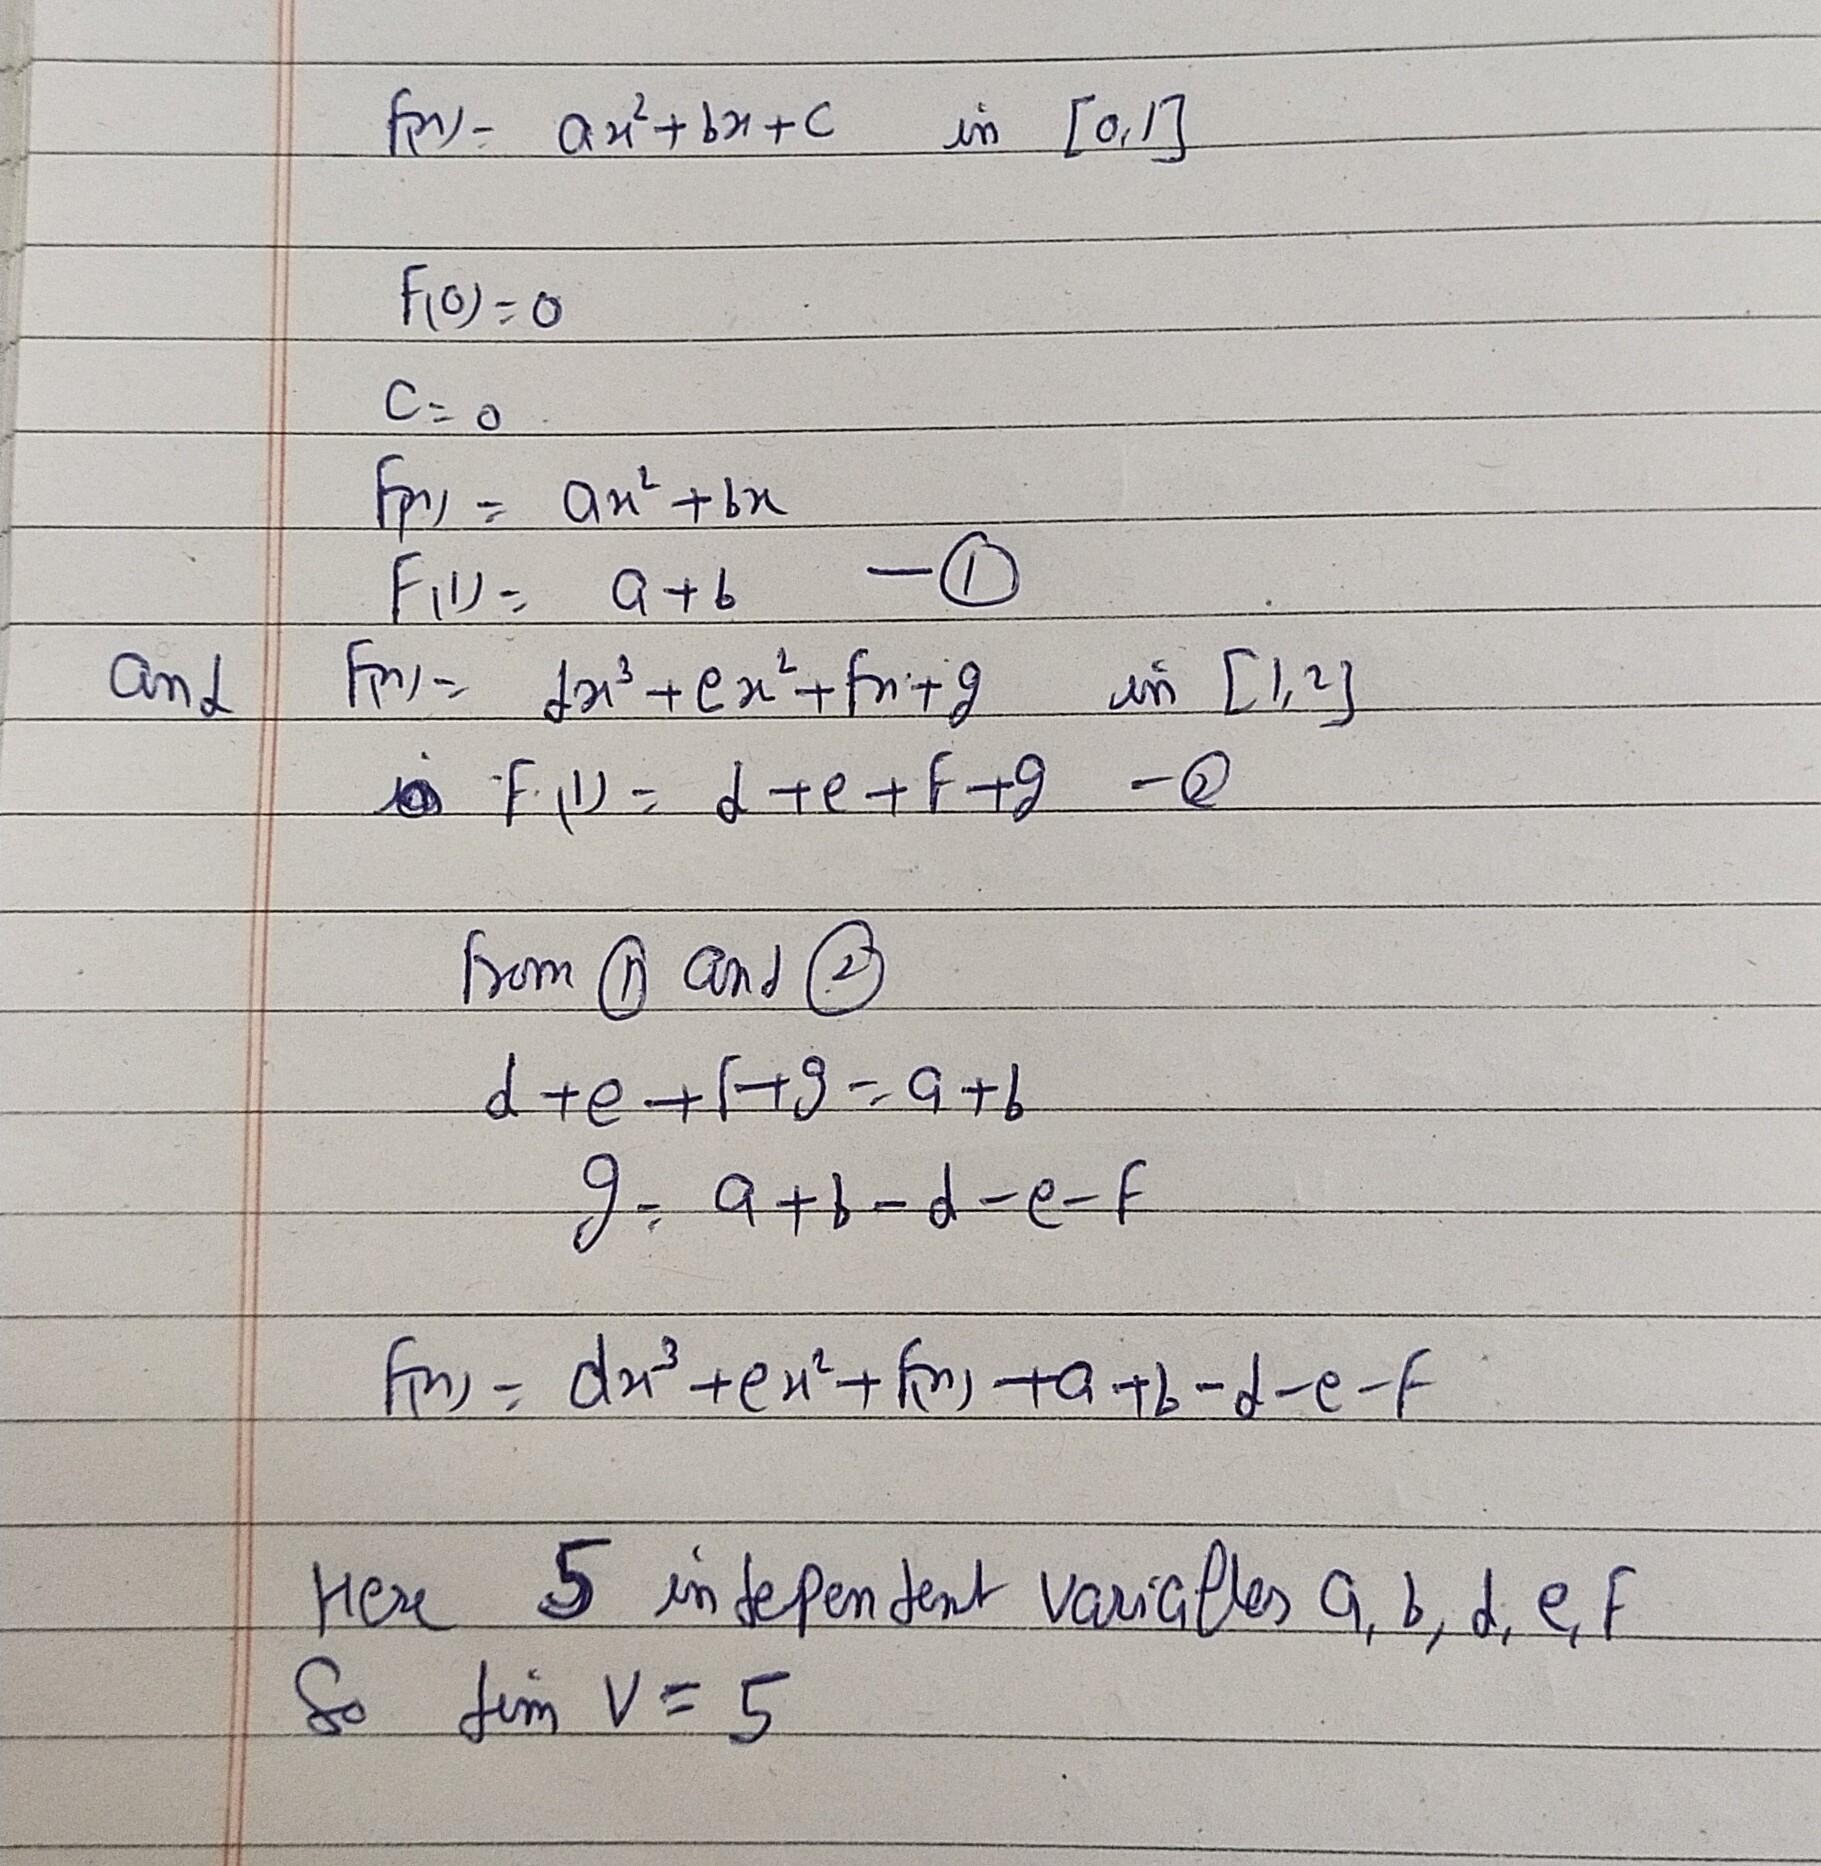 f(x) = ax² + bx + c in [0,1]
F(0) = 0
C = 0
F(x) = ax² + bx
F(1) = a + b — ①
and F(x) = dx³ + ex² + fx + g in [1,2]
F(1) = d + e + F + g - ②
from ① and ②
d + e + f + g = a + b
g = a + b - d - e - F
f(x) = dx³ + ex² + f(x) + a + b - d - e - F
Here 5 independent variables a, b, d, e, F
So dim V = 5